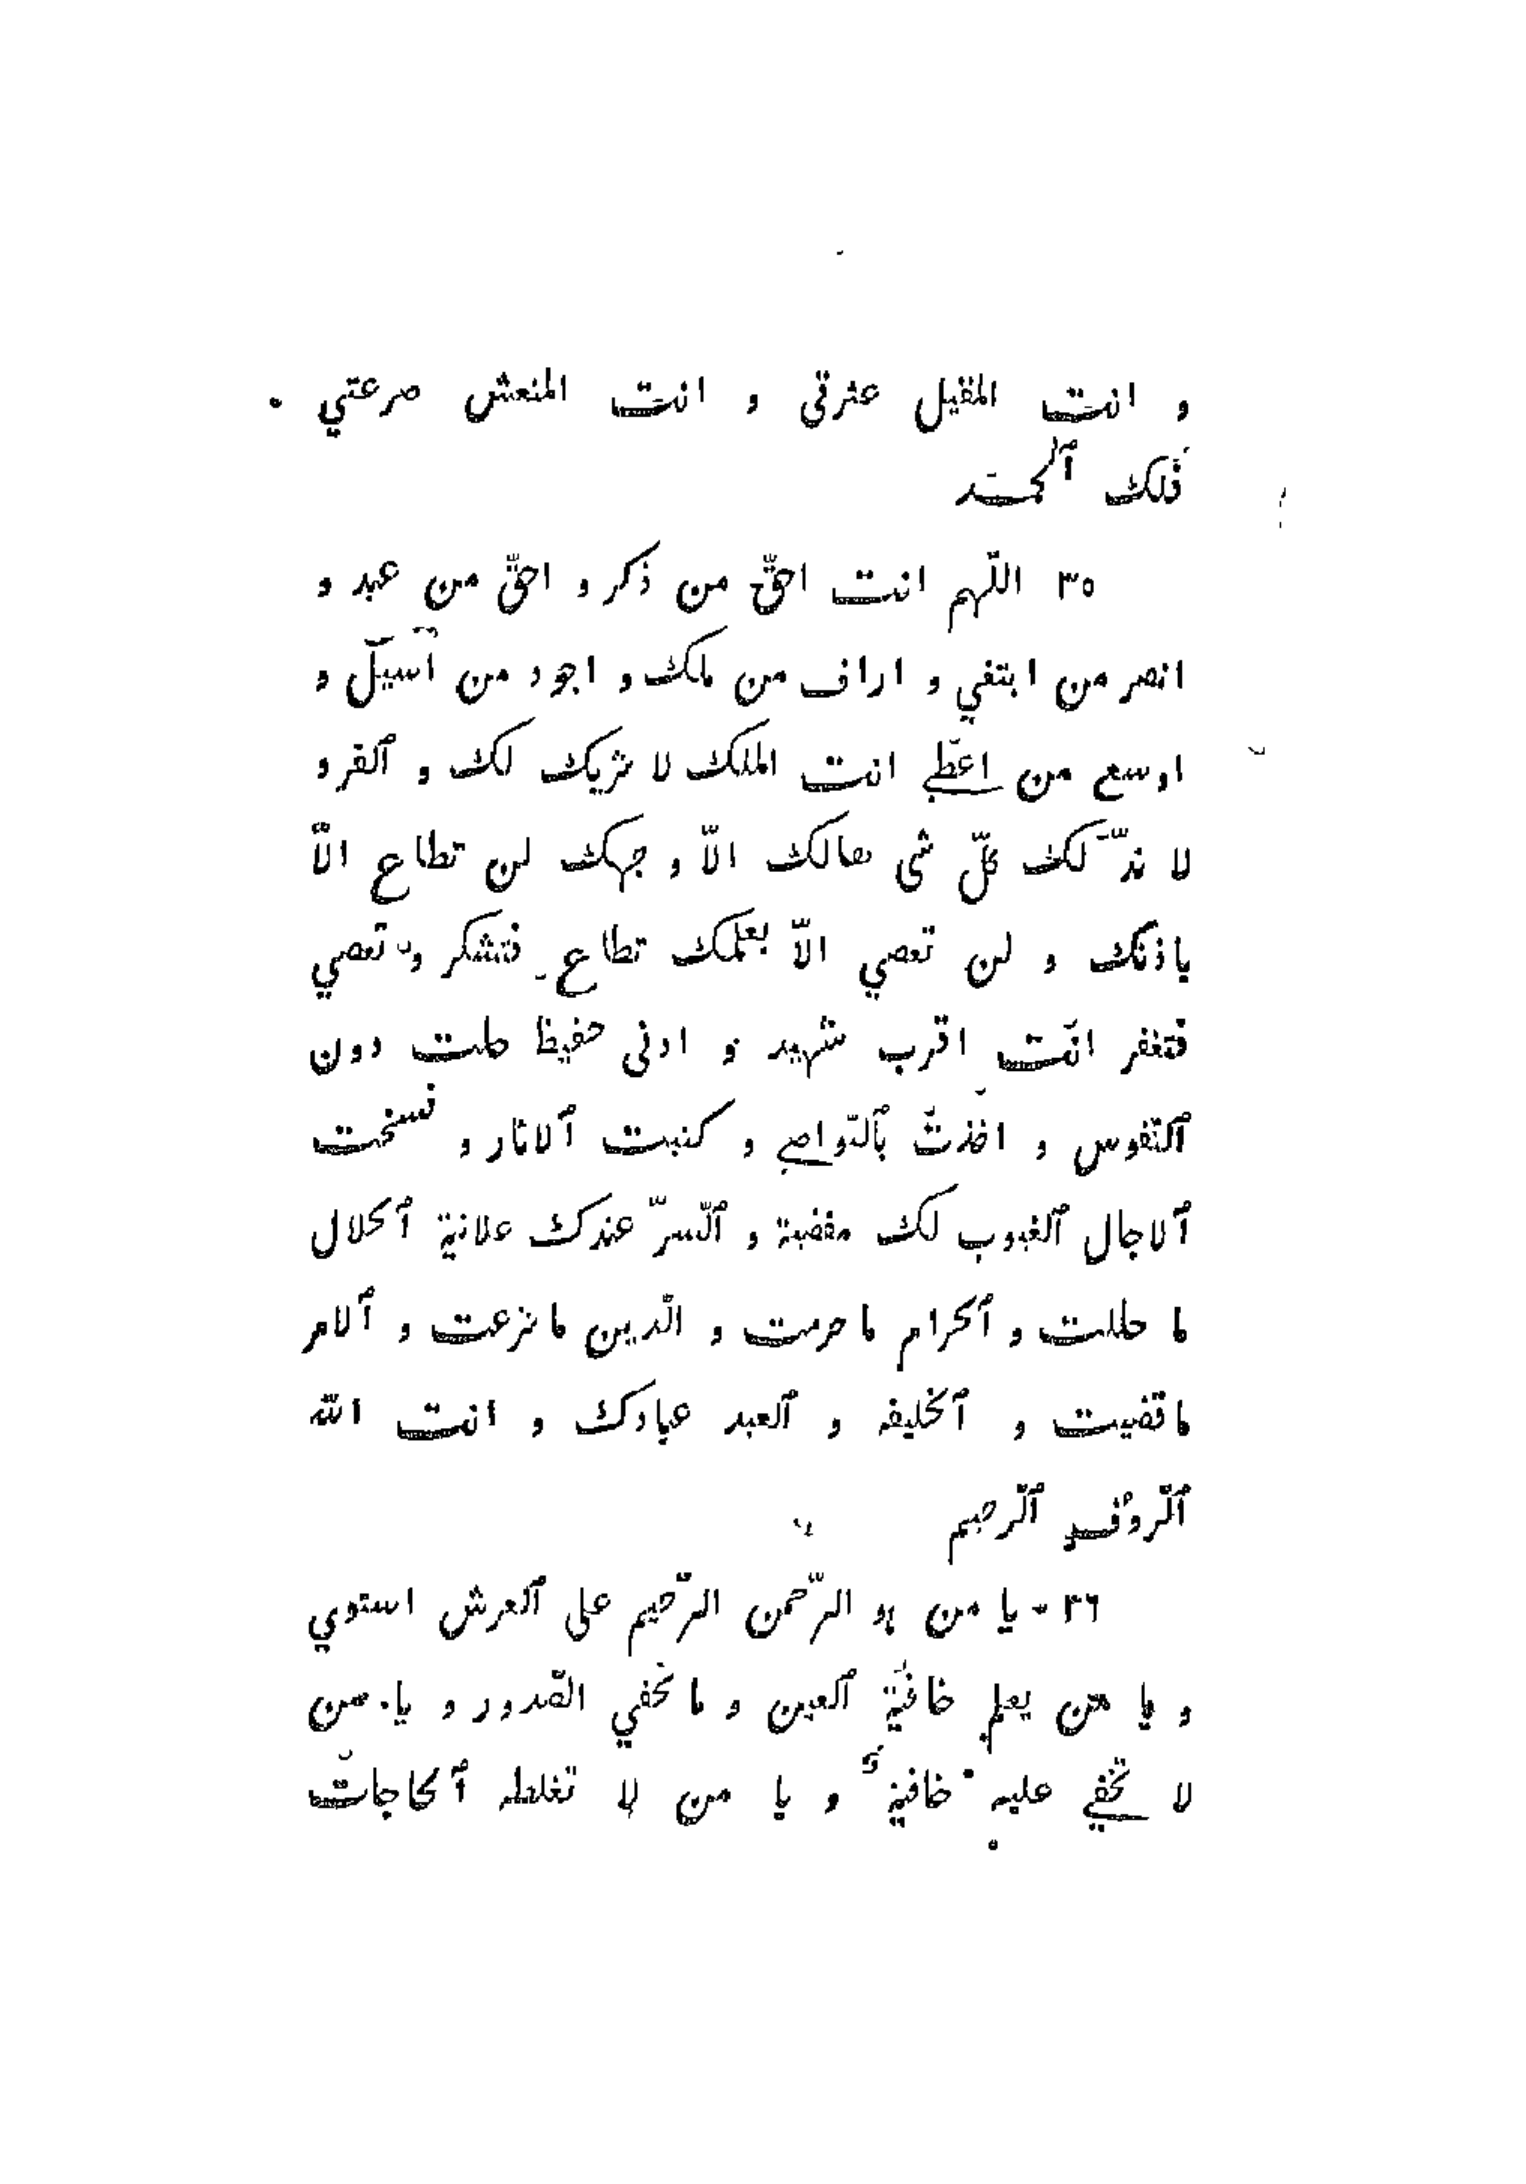 و انت المقيل عثرتي و انت المنعش صرعتي .
فلك ٱلحمد
٣٥ اللّهم انت احقّ من ذكر و احقّ من عبد و
انصر من ابتغي و اراف من ملك و اجود من اسيل و
اوسع من اعطي انت الملك لا شريك لك و ٱلفرد
لا ندّ لك كلّ شى هالك الاّ وجهك لن تطاع الاّ
باذنك و لن تعصي الاّ بعلمك تطاع فتشكر و تعصي
فتغفر انت اقرب شهيد و ادنى حفيظ حلت دون
ٱلنّفوس و اخذت بٱلنّواصي و كتبت ٱلاثار و نسخت
ٱلاجال ٱلغيوب لك مفضية و ٱلسرّ عندك علانية ٱلحلال
ما حللت و ٱلحرام ما حرمت و الدّين ما شرعت و ٱلامر
ما قضيت و ٱلخليفه و ٱلعبد عبادك و انت الله
ٱلرّوُف ٱلرّحيم
٣٦ - يا من هو الرّحمن الرّحيم على ٱلعرش استوي
و يا من يعلم خافية ٱلعين و ما تخفي الصّدور و يا من
لا تخفي عليه خافية و يا من لا تغلطه ٱلحاجات